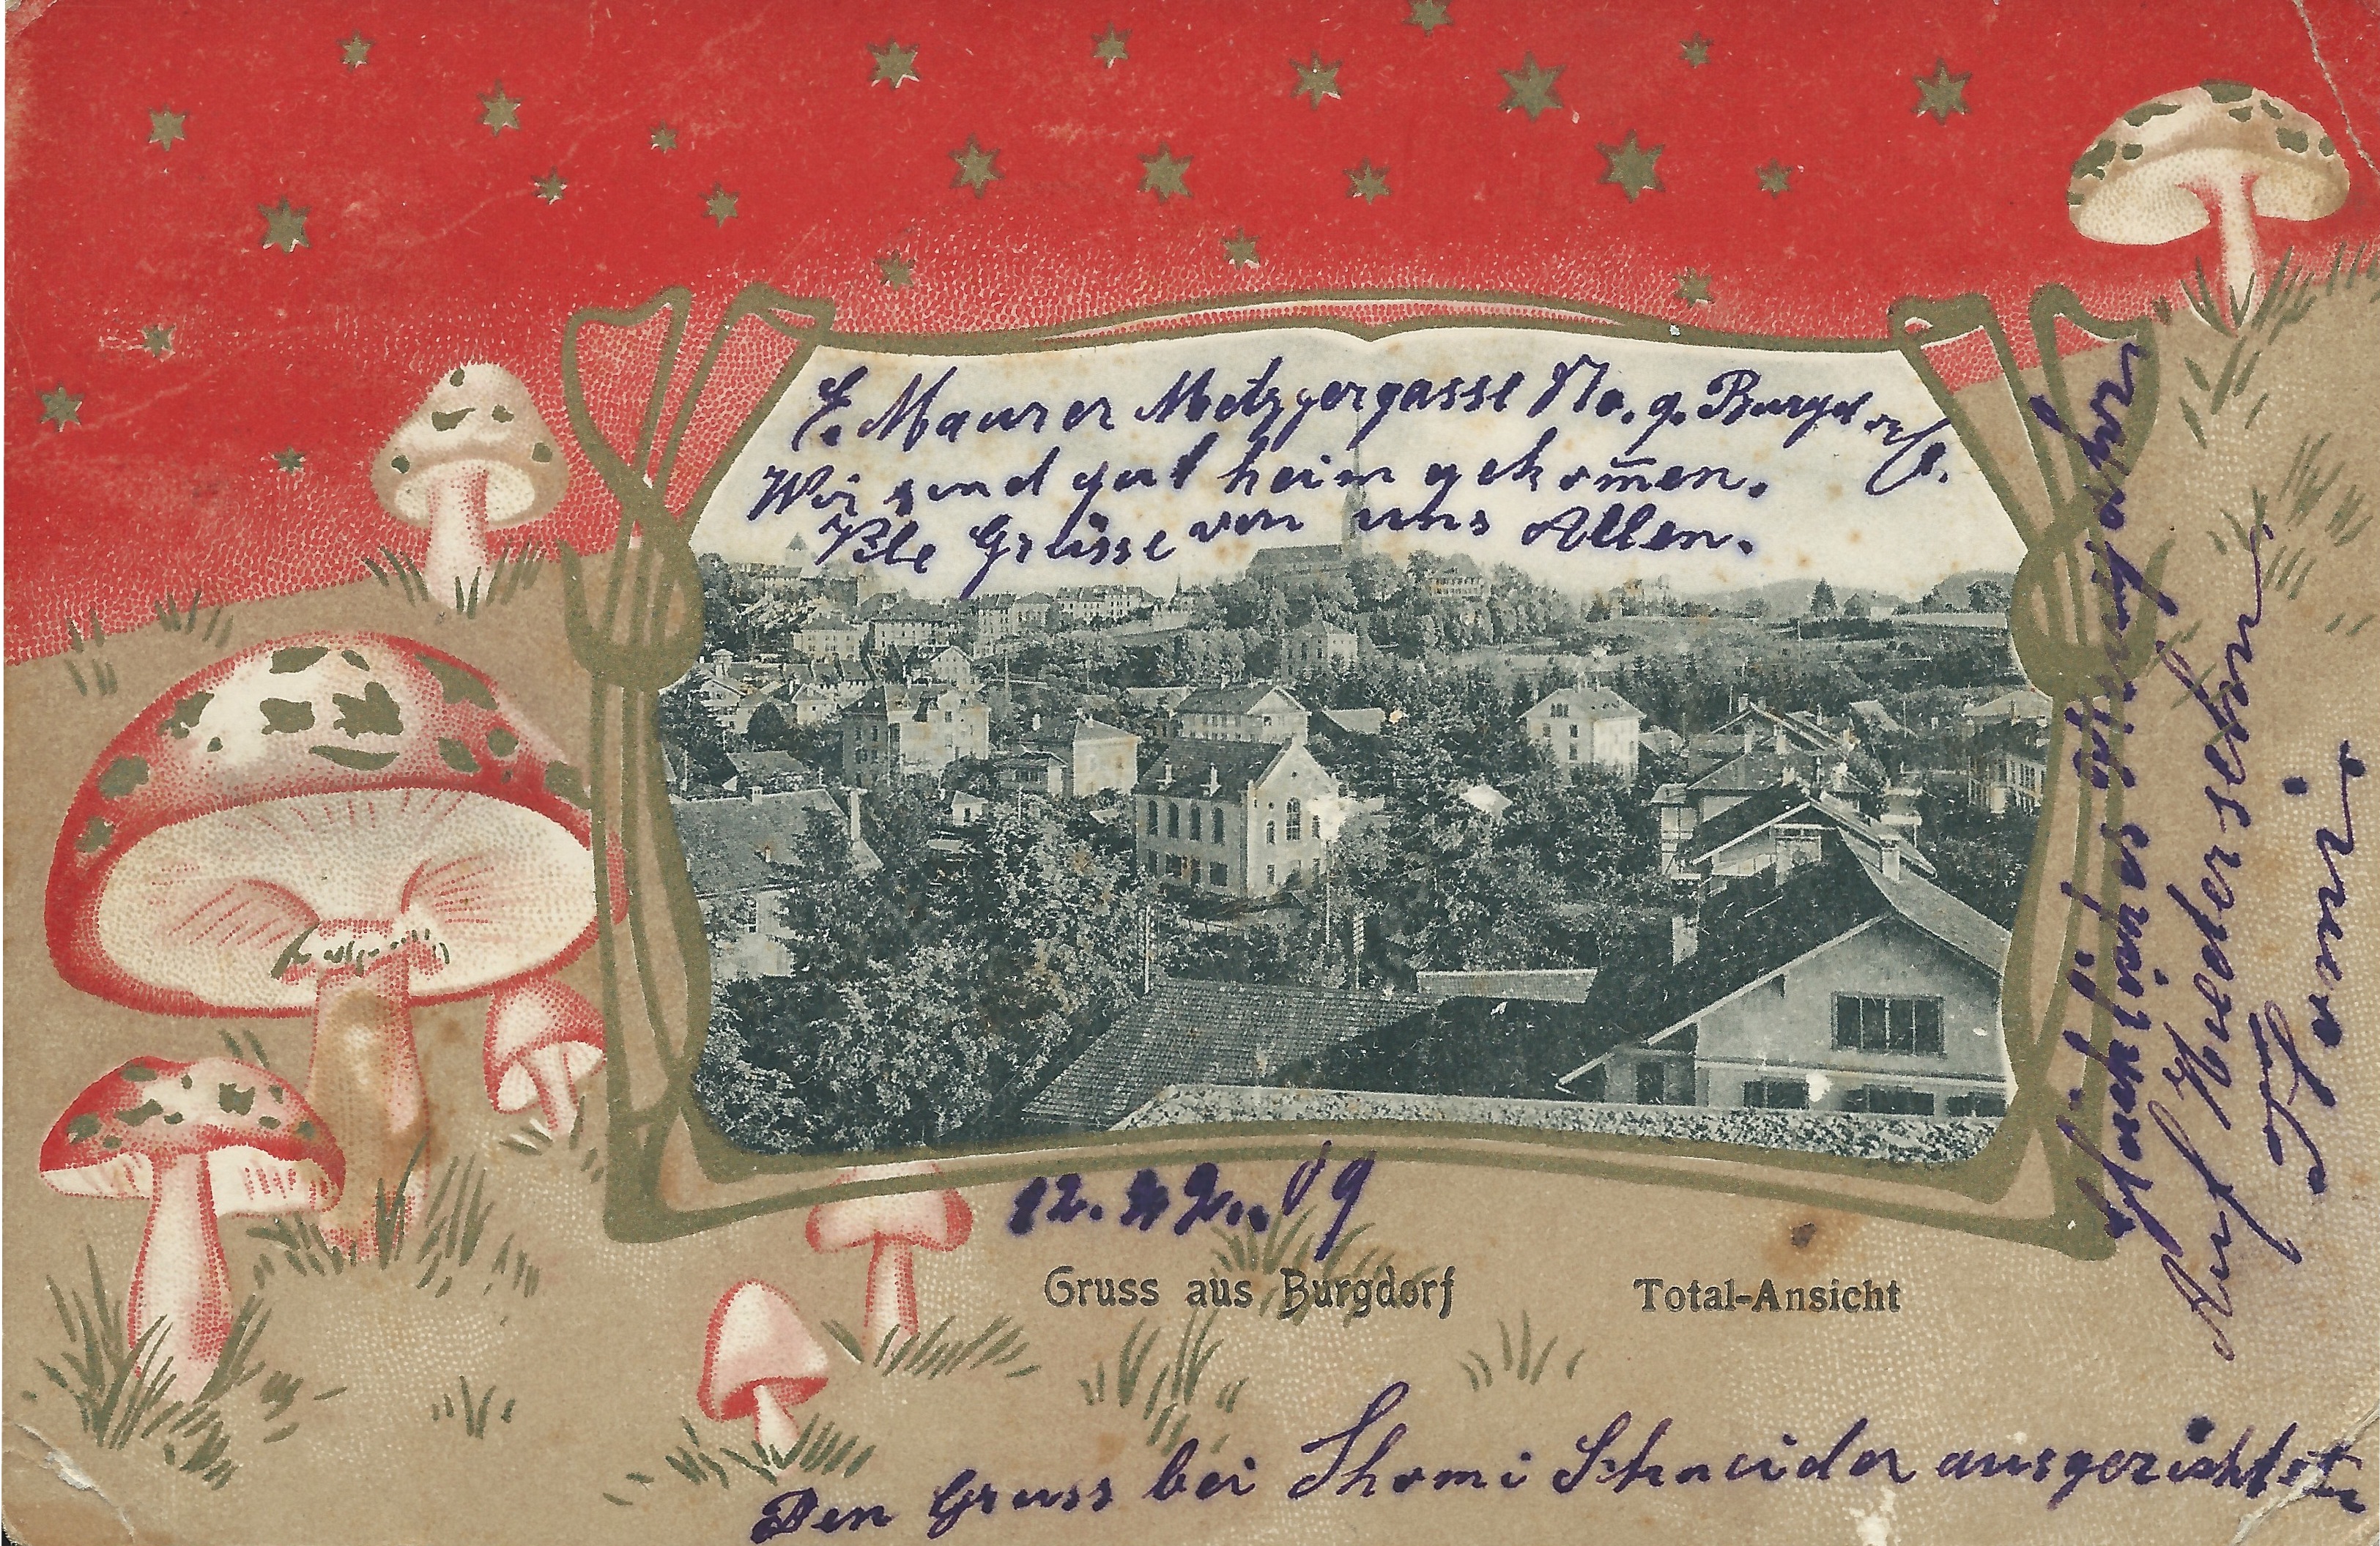 E. Maurer Metzgergasse No. 9. Burgdorf.
Wir sind gut heim gekom̅en.
Ble Grüsse von uns Allen.
12. 2..09
Gruss aus Burgdorf
Total-Ansicht
Den Gruss bei Thomi Schneider ausgerichtet
Auf Wiedersehn